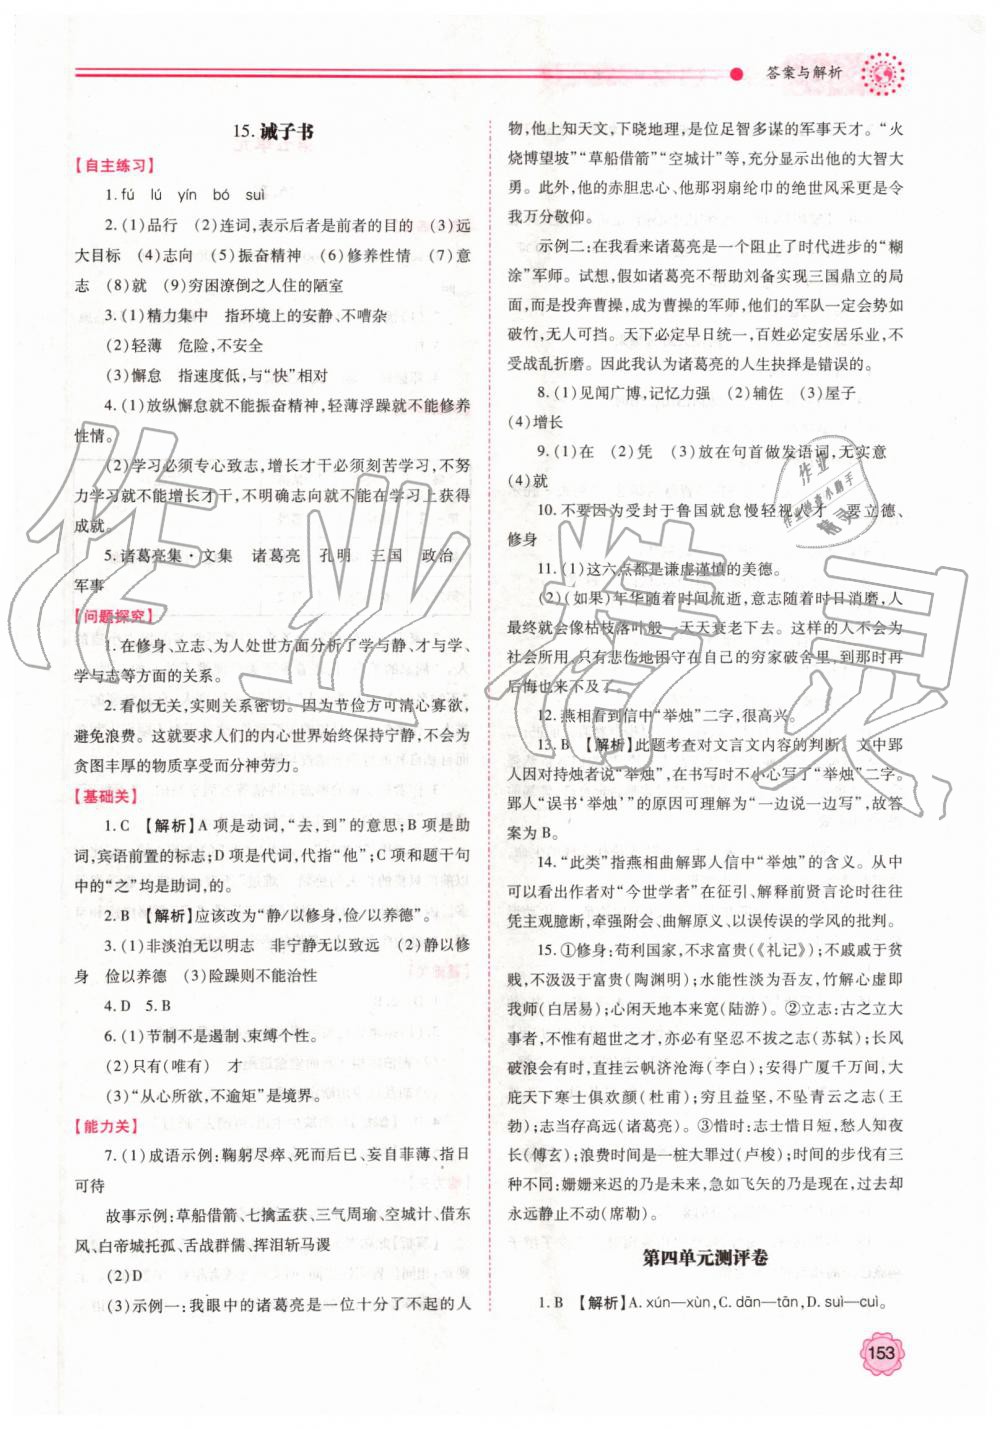 答案与解析
15. 诫子书
【自主练习】
1. fú　lú　yín　bó　suì
2. (1)品行　(2)连词,表示后者是前者的目的　(3)远
大目标　(4)志向　(5)振奋精神　(6)修养性情　(7)意
志　(8)就　(9)穷困潦倒之人住的陋室
3. (1)精力集中　指环境上的安静、不嘈杂
(2)轻薄　危险,不安全
(3)懈怠　指速度低,与“快”相对
4. (1)放纵懈怠就不能振奋精神,轻薄浮躁就不能修养
性情。
(2)学习必须专心致志,增长才干必须刻苦学习,不努
力学习就不能增长才干,不明确志向就不能在学习上获得
成就。
5. 诸葛亮集·文集　诸葛亮　孔明　三国　政治
军事
【问题探究】
1. 在修身、立志、为人处世方面分析了学与静、才与学、
学与志等方面的关系。
2. 看似无关,实则关系密切。因为节俭方可清心寡欲,
避免浪费。这就要求人们的内心世界始终保持宁静,不会为
贪图丰厚的物质享受而分神劳力。
【基础关】
1. C　【解析】A 项是动词,“去,到”的意思;B 项是助
词,宾语前置的标志;D 项是代词,代指“他”;C 项和题干句
中的“之”均是助词,的。
2. B　【解析】应该改为“静/以修身,俭/以养德”。
3. (1)非淡泊无以明志　非宁静无以致远　(2)静以修
身　俭以养德　(3)险躁则不能治性
4. D　5. B
6. (1)节制不是遏制、束缚个性。
(2)只有(唯有)　才
(3)“从心所欲,不逾矩”是境界。
【能力关】
7. (1)成语示例:鞠躬尽瘁、死而后已、妄自菲薄、指日
可待
故事示例:草船借箭、七擒孟获、三气周瑜、空城计、借东
风、白帝城托孤、舌战群儒、挥泪斩马谡
(2)D
(3)示例一:我眼中的诸葛亮是一位十分了不起的人
物,他上知天文,下晓地理,是位足智多谋的军事天才。“火
烧博望坡”“草船借箭”“空城计”等,充分显示出他的大智大
勇。此外,他的赤胆忠心、他那羽扇纶巾的绝世风采更是令
我万分敬仰。
示例二:在我看来诸葛亮是一个阻止了时代进步的“糊
涂”军师。试想,假如诸葛亮不帮助刘备实现三国鼎立的局
面,而是投奔曹操,成为曹操的军师,他们的军队一定会势如
破竹,无人可挡。天下必定早日统一,百姓必定安居乐业,不
受战乱折磨。因此我认为诸葛亮的人生抉择是错误的。
8. (1)见闻广博,记忆力强　(2)辅佐　(3)屋子
(4)增长
9. (1)在　(2)凭　(3)放在句首做发语词,无实意
(4)就
10. 不要因为受封于鲁国就怠慢轻视人才　要立德、
修身
11. (1)这六点都是谦虚谨慎的美德。
(2)(如果)年华随着时间流逝,意志随着时日消磨,人
最终就会像枯枝落叶般一天天衰老下去。这样的人不会为
社会所用,只有悲伤地困守在自己的穷家破舍里,到那时再
后悔也来不及了。
12. 燕相看到信中“举烛”二字,很高兴。
13. B　【解析】此题考查对文言文内容的判断。文中郢
人因对持烛者说“举烛”,在书写时不小心写了“举烛”二字。
郢人“误书‘举烛’”的原因可理解为“一边说一边写”,故答
案为 B。
14. “此类”指燕相曲解郢人信中“举烛”的含义。从中
可以看出作者对“今世学者”在征引、解释前贤言论时往往
凭主观臆断,牵强附会、曲解原义、以误传误的学风的批判。
15. ①修身:苟利国家,不求富贵(《礼记》);不戚戚于贫
贱,不汲汲于富贵(陶渊明);水能性淡为吾友,竹解心虚即
我师(白居易);心闲天地本来宽(陆游)。②立志:古之立大
事者,不惟有超世之才,亦必有坚忍不拔之志(苏轼);长风
破浪会有时,直挂云帆济沧海(李白);安得广厦千万间,大
庇天下寒士俱欢颜(杜甫);穷且益坚,不坠青云之志(王
勃);志当存高远(诸葛亮)。③惜时:志士惜日短,愁人知夜
长(傅玄);浪费时间是一桩大罪过(卢梭);时间的步伐有三
种不同:姗姗来迟的乃是未来,急如飞矢的乃是现在,过去却
永远静止不动(席勒)。
第四单元测评卷
1. B　【解析】A. xún—xùn, C. dān—tān, D. suì—cuì。
153
作业精灵
作业
作业检查小助手
精灵